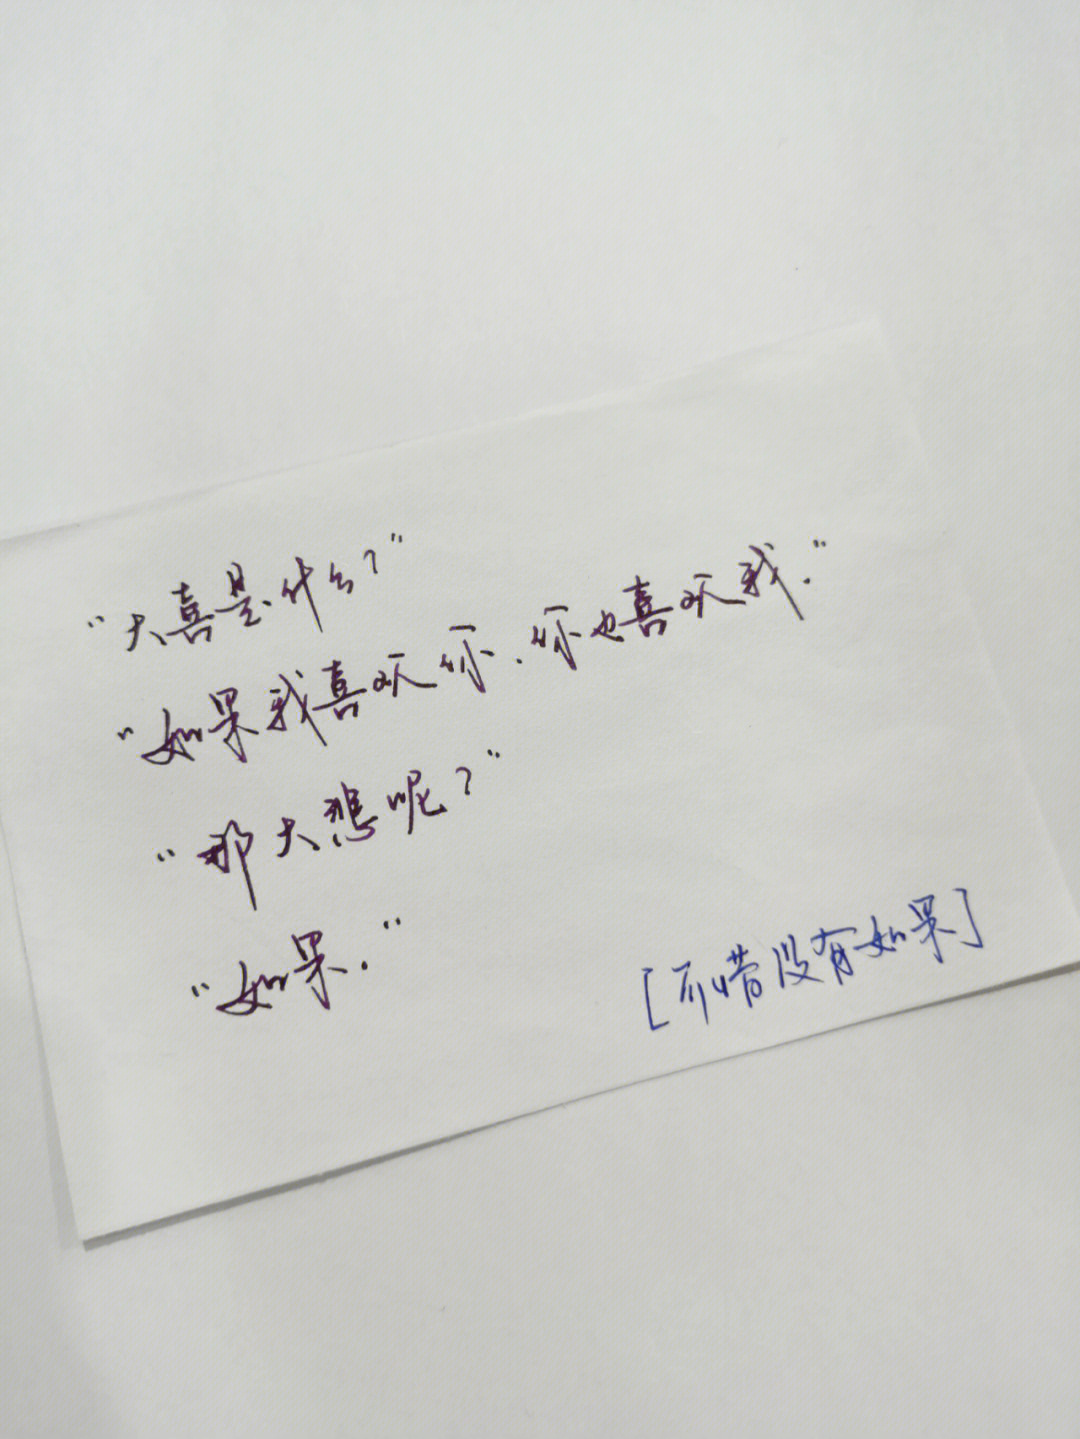 “大喜是什么？”
“如果我喜欢你．你也喜欢我．”
“那大悲呢？”
“如果．”
[可惜没有如果]